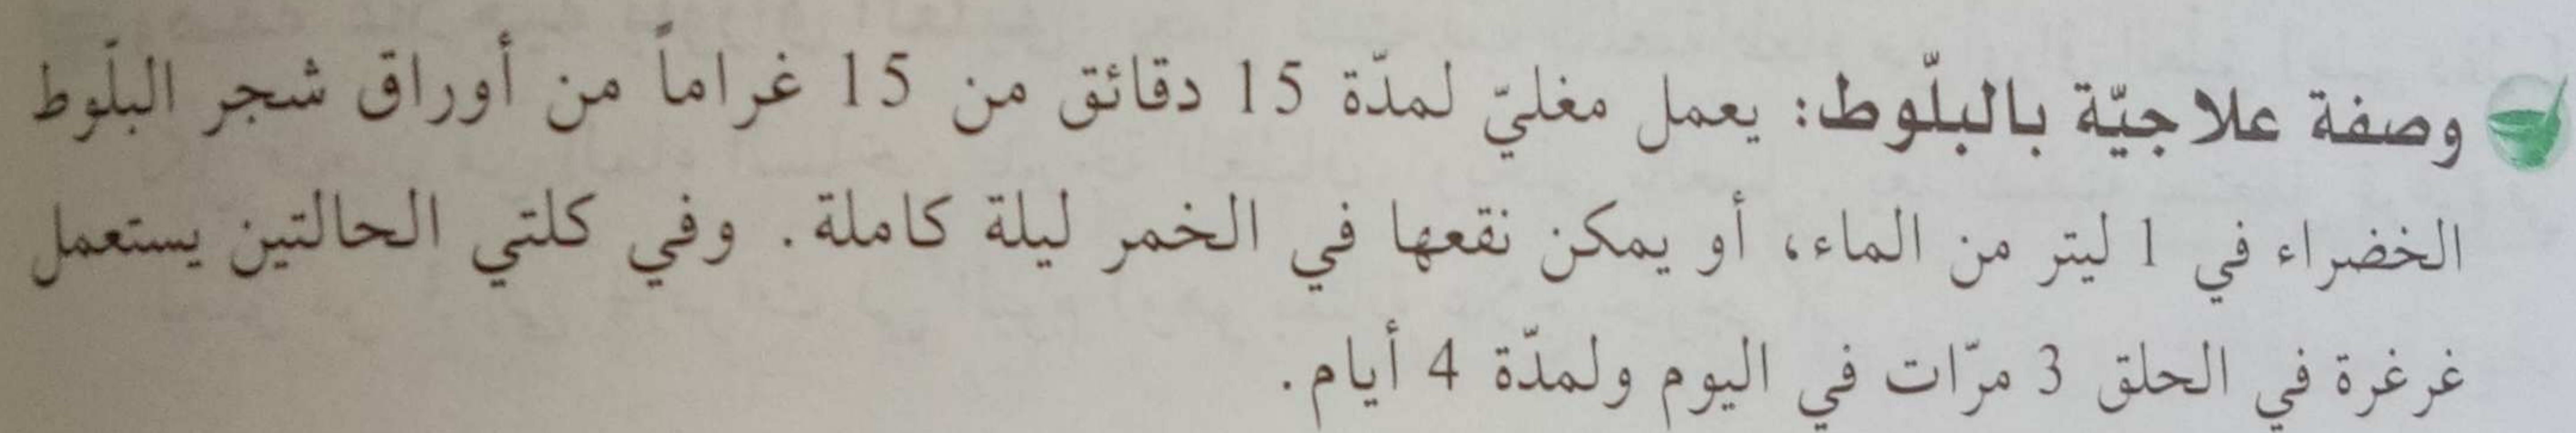 وصفة علاجيّة بالبلّوط: يعمل مغليّ لمدّة 15 دقائق من 15 غراماً من أوراق شجر البلّوط
الخضراء في 1 ليتر من الماء، أو يمكن نقعها في الخمر ليلة كاملة. وفي كلتي الحالتين يستعمل
غرغرة في الحلق 3 مرّات في اليوم ولمدّة 4 أيام.